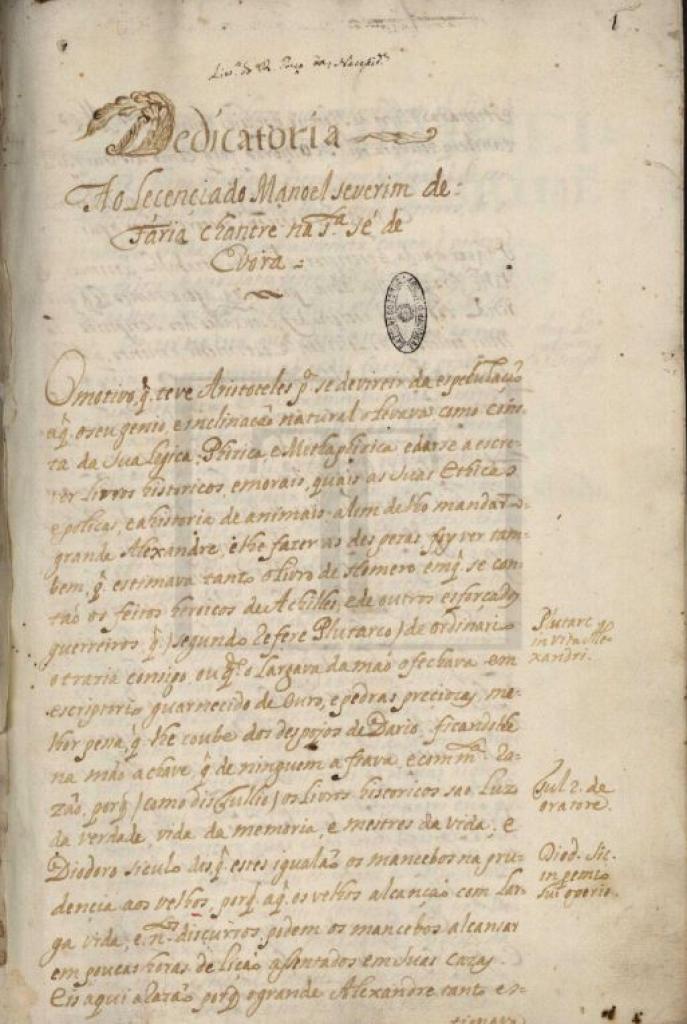 1
Dedicatoria
Ao Lecenciado Manoel severim de
Faria chantre na sᵗᵃ sé de
Evora
O motivo, q̃ teve Aristoteles pª se devirtir da espiculação
aq̃ o seu genio, e inclinacaõ natural o levava como cons-
ta da sua Logica, Phisica, e Methaphisica e darse a escre-
ver Livros historicos, e morais, quais as suas Ethicas
e policas, e a historia de animais alem de lho mandar o
grande Alexandre, e lhe fazer as despezas foy ver tam-
bem, q̃ estimava tanto o Livro de Homero em q̃ se con-
taõ os feitos heroicos de Achilles, e de outros esforcados
guerreiros q̃ ) segundo refere Plutarco ) de ordinario
o trazia consigo, ou q̃ᵈᵒ o Largava da maõ o fechava em
escriptorio guarnecido de Ouro, e pedras preciozas, me-
lhor pessa, q̃ lhe coube dos despojos de Dario, ficandolhe
na maõ a chave, q̃ de ninguem a fiava, e com mᵗᵃ ra-
zaõ, porq̃ ) como dis Tullio ) os Livros historicos saõ Luz
da verdade, vida da memoria, e mestres da vida, e
Diodoro siculo dis q̃ estes igualaõ os mancebos na pru-
dencia aos velhos, porq̃ aq̃ os velhos alcançaõ com Lar-
ga vida, e nˢ discursos, podem os mancebos alcansar
em poucas horas de licaõ assentados em suas cazas.
Eis aqui a razaõ porq̃ o grande Alexandre tanto es-
timava
Plutarc.
in vita Ale-
xandri.
Tul 2. de
oratore.
Diod. Sic.
in pemio
sui operis.